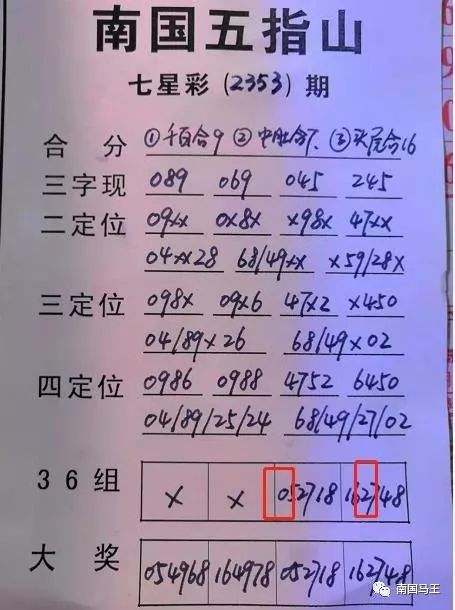 南国五指山
七星彩(2353)期
合分 ①千百合9 ②中肚含7、③头尾合16
三字现 089 069 045 245
二定位 09xx 0x8x x98x 47xx
04xx28 68/49xx x59/28x
三定位 098x 09x6 47x2 x450
04/89x26 68/49x02
四定位 0986 0988 4752 6450
04/89/25/24 68/49/27/02
36组 x x 052718 162748
大奖 054968 164978 052718 162748
南国马王